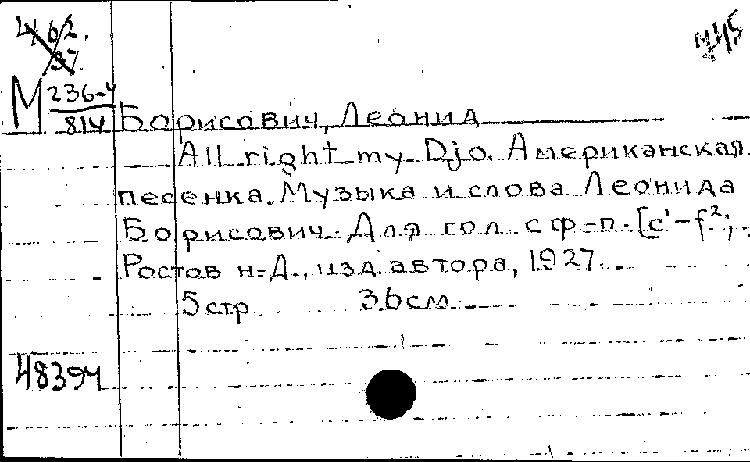 462.
37.
М 236-4
814
Борисович, Леонид
All right my Djo. Американская
песенка. Музыка и слова Леонида
Борисович. Для гол. с ф-п. [c¹-f²;.
Ростов н-Д., изд. автора, 1927.
5 стр 36 см
48394